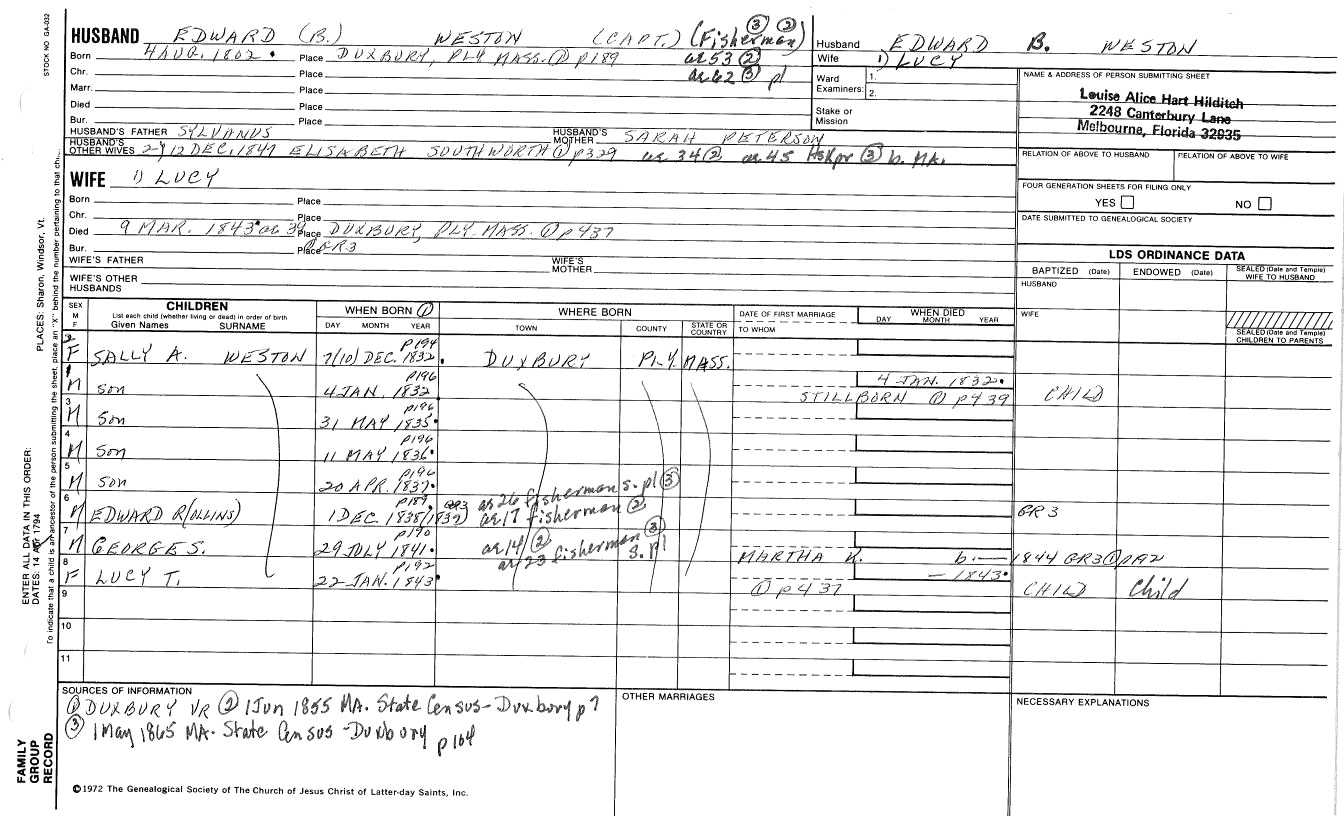 STOCK NO GA-032
HUSBAND EDWARD (B.) WESTON (CAPT.) (Fisherman) ③ ②
Born 4 AUG. 1802 • Place DUXBURY, PLY MASS. ① p189 ae 53 ②
Chr. Place ae 62 ③ pl
Marr. Place
Died Place
Bur. Place
HUSBAND'S FATHER SYLVANUS HUSBAND'S MOTHER SARAH PETERSON
HUSBAND'S OTHER WIVES 2) 12 DEC. 1847 ELISABETH SOUTHWORTH ① p329 ae 34 ② ae 45 Hskpr ③ b. MA.
WIFE 1) LUCY
Born Place
Chr. Place
Died 9 MAR. 1843 • ae 34 Place DUXBURY, PLY MASS. ① p437
Bur. Place GR3
WIFE'S FATHER WIFE'S MOTHER
WIFE'S OTHER HUSBANDS
Husband EDWARD B. WESTON
Wife 1) LUCY
Ward Examiners: 1.
2.
Stake or Mission
NAME & ADDRESS OF PERSON SUBMITTING SHEET
Louise Alice Hart Hilditch
2248 Canterbury Lane
Melbourne, Florida 32935
RELATION OF ABOVE TO HUSBAND RELATION OF ABOVE TO WIFE
FOUR GENERATION SHEETS FOR FILING ONLY
YES NO
DATE SUBMITTED TO GENEALOGICAL SOCIETY
LDS ORDINANCE DATA
BAPTIZED (Date) ENDOWED (Date) SEALED (Date and Temple) WIFE TO HUSBAND
HUSBAND
WIFE
SEALED (Date and Temple) CHILDREN TO PARENTS
SEX M F CHILDREN WHEN BORN ① WHERE BORN DATE OF FIRST MARRIAGE WHEN DIED
List each child (whether living or dead) in order of birth
Given Names SURNAME DAY MONTH YEAR TOWN COUNTY STATE OR COUNTRY TO WHOM DAY MONTH YEAR
2 F SALLY A. WESTON 7/(10) DEC. 1832 • p194 DUXBURY PLY. MASS.
1 M son 4 JAN. 1832 p196 4 JAN. 1832 • STILLBORN ① p439 CHILD
3 M son 31 MAY 1835 • p196
4 M son 11 MAY 1836 • p196
5 M son 20 APR. 1837 • p196
6 M EDWARD R(OLLINS) 1 DEC. 1838/(1832) p189 GR3 ae 26 fisherman s. pl ③ ae 17 fisherman ② GR3
7 M GEORGE S. 29 JULY 1841 • p190 ae 14 ② ae 23 fisherman ③ s. pl MARTHA K. b. — 1844 GR3 ① p
8 F LUCY T. 22 JAN. 1843 • p192 — 1843 • ① p437 CHILD Child
9
10
11
SOURCES OF INFORMATION
① DUXBURY VR ② 1 Jun 1855 MA. State Census - Duxbury p7
③ 1 May 1865 MA. State Census - Duxbury p 104
OTHER MARRIAGES
NECESSARY EXPLANATIONS
©1972 The Genealogical Society of The Church of Jesus Christ of Latter-day Saints, Inc.
FAMILY GROUP RECORD
ENTER ALL DATA IN THIS ORDER:
DATES: 14 Apr 1794
PLACES: Sharon, Windsor, Vt.
To indicate that a child is an ancestor of the person submitting the sheet, place an "X" behind the number pertaining to that ch